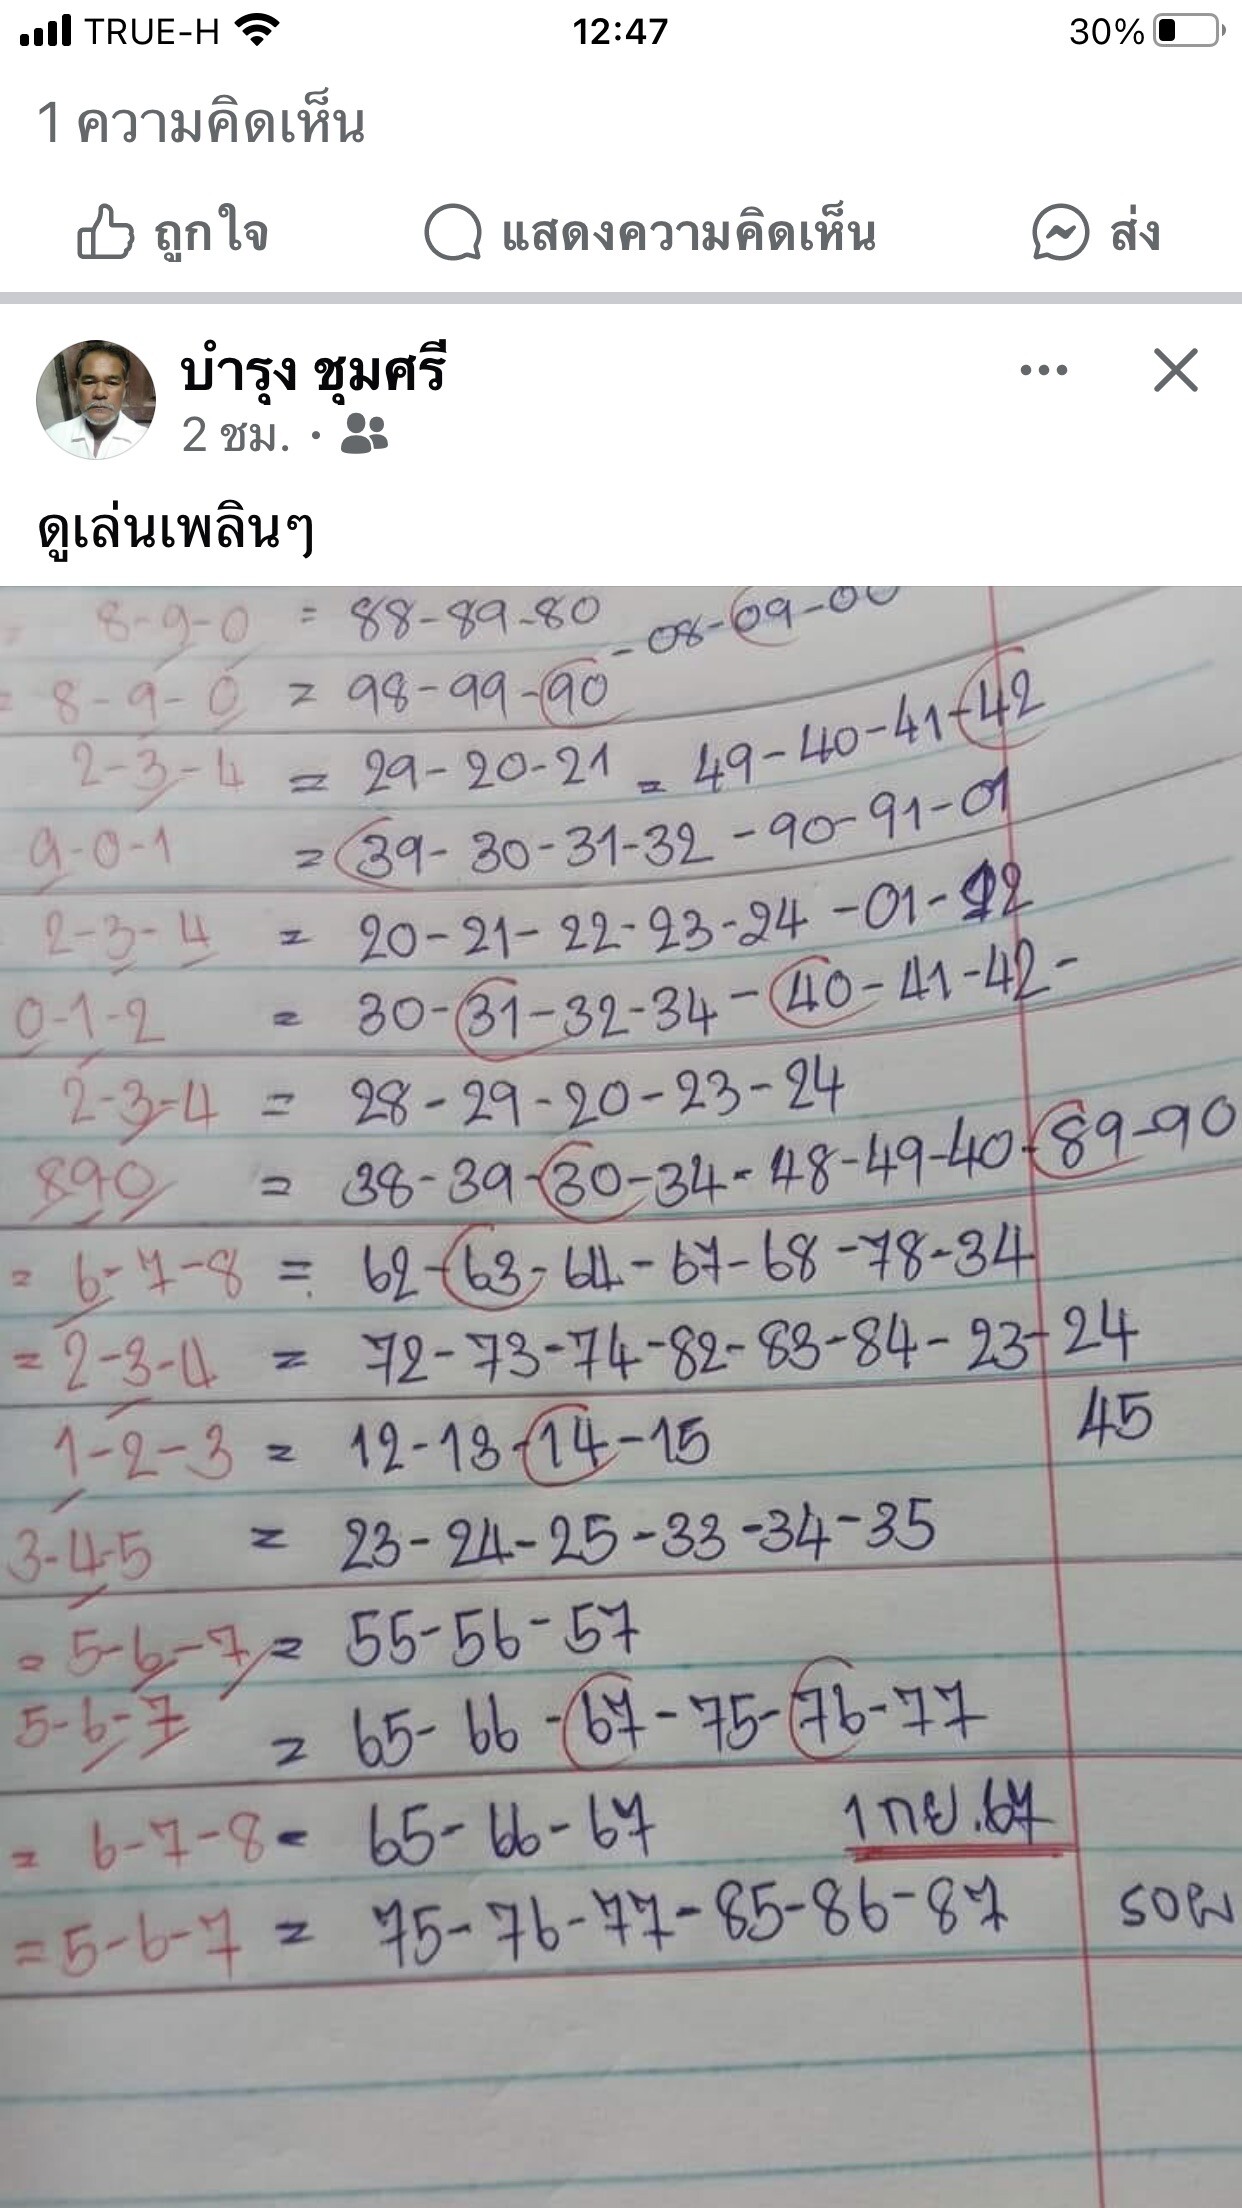 TRUE-H 12:47 30%
1 ความคิดเห็น
ถูกใจ แสดงความคิดเห็น ส่ง
บำรุง ชุมศรี
2 ชม. ·
ดูเล่นเพลินๆ
8-9-0 = 88-89-80 - 08-09-00
= 8-9-0 = 98-99-90
2-3-4 = 29-20-21 = 49-40-41-42
9-0-1 = 39-30-31-32-90-91-01
2-3-4 = 20-21-22-23-24-01-12
0-1-2 = 30-31-32-34-40-41-42-
2-3-4 = 28-29-20-23-24
890 = 38-39-30-34-48-49-40-89-90
= 6-7-8 = 62-63-64-67-68-78-34
= 2-3-4 = 72-73-74-82-83-84-23-24
1-2-3 = 12-13-14-15 45
3-4-5 = 23-24-25-33-34-35
= 5-6-7 = 55-56-57
5-6-7 = 65-66-67-75-76-77
= 6-7-8 = 65-66-67 1 กย.67
= 5-6-7 = 75-76-77-85-86-87 รอผ